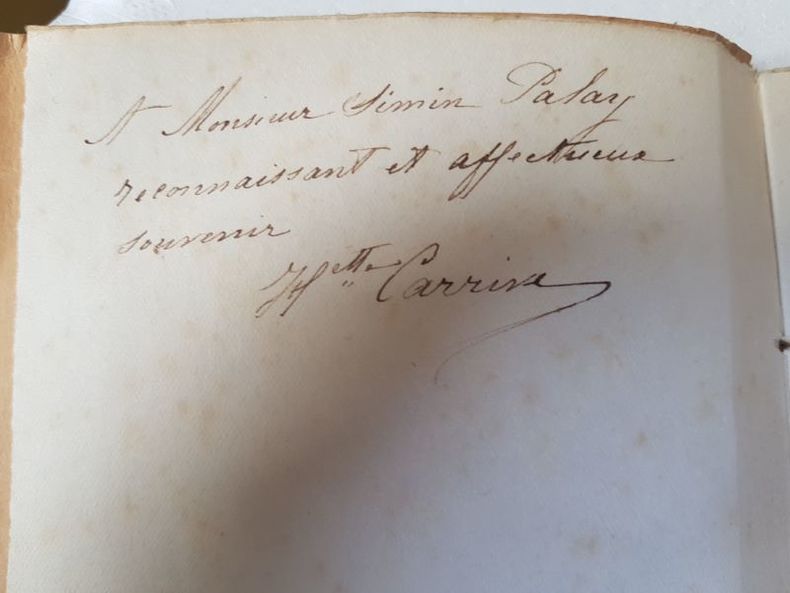 A Monsieur Simin Palay
reconnaissant et affectueux
souvenir
Hette Carrive